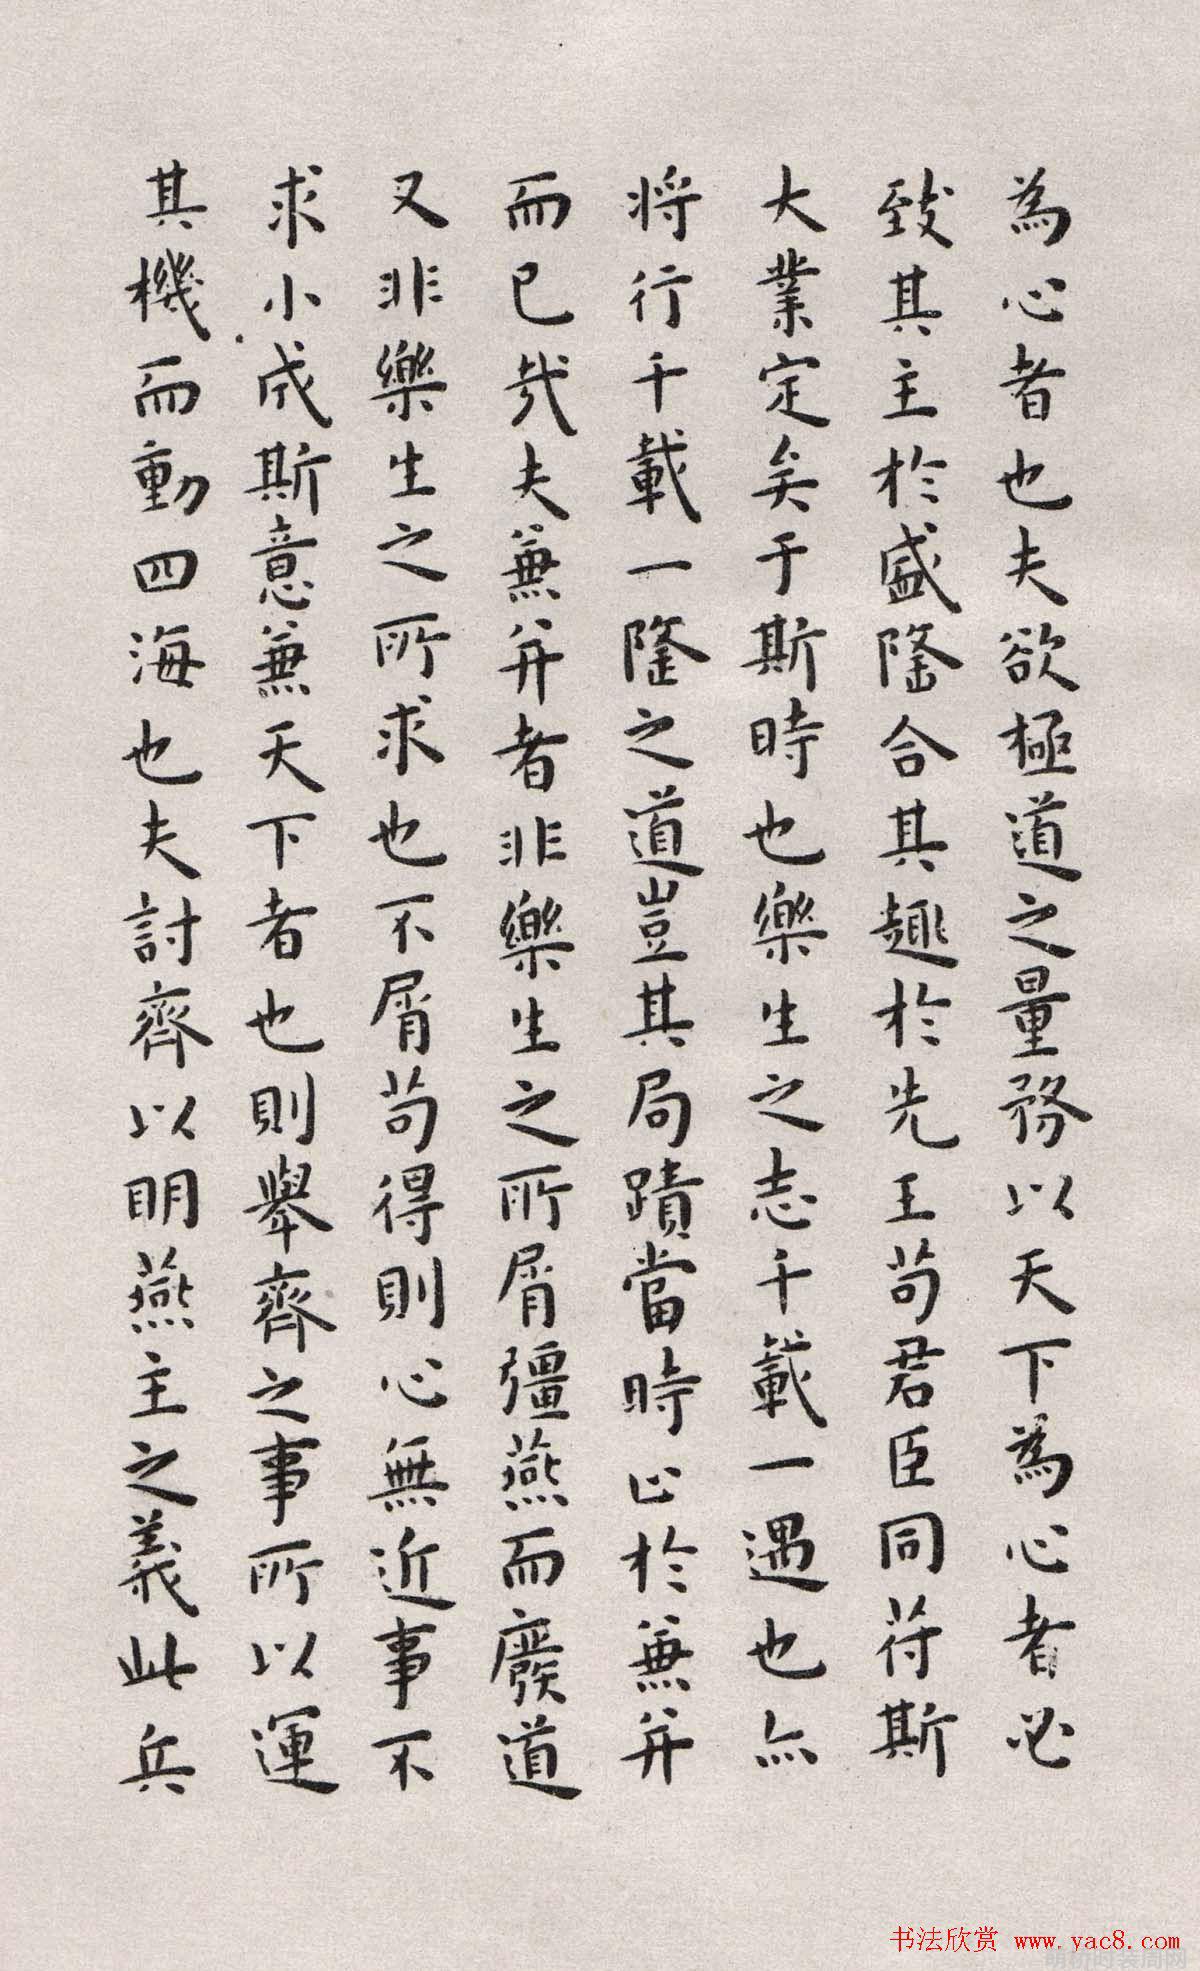 為心者也夫欲極道之量務以天下為心者必
致其主於盛隆合其趣於先王苟君臣同符斯
大業定矣于斯時也樂生之志千載一遇也亦
將行千載一隆之道豈其局蹟當時止於兼并
而已哉夫兼并者非樂生之所屑彊燕而廢道
又非樂生之所求也不屑苟得則心無近事不
求小成斯意兼天下者也則舉齊之事所以運
其機而動四海也夫討齊以明燕主之義此兵
书法欣赏 www.yac8.com
明析时装周网